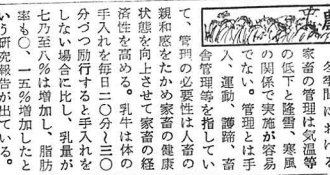 冬季間に於ける
家畜の管理は気温
の低下と隆雪、寒風
の関係で実施が容易
でない。管理とは手
入、運動、護蹄、畜
舎管理等を指してい
て、管理の必要性は人畜の
親和感をたかめ家畜の健康
状態を向上させて家畜の経
済性を高める。乳牛は体の
手入れを毎日二〇分〜三〇
分づつ励行すると手入れを
しない場合に比し、乳量が
七乃至八%増加し、脂肪
率も〇・一五%増加したと
いう研究報告が出ている。